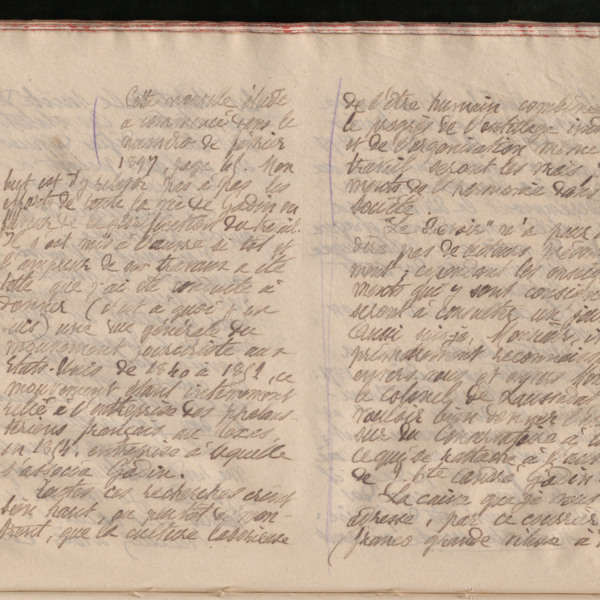 Cette nouvelle étude
a commencé dans le
numéro de février
1897, page 65. Mon
but est d'y relever pas à pas les
efforts de toute la vie de Godin en
faveur de la glorification du travail.
Il s'est mis à l'œuvre si tôt et
l'ampleur de ses travaux a été
telle que j'ai été conduite à
donner (c'est à quoi j'en
suis) une vue générale du
mouvement fouriériste aux
Etats-Unis de 1840 à 1852, ce
mouvement étant intimement
relié à l'entreprise des phalans-
tériens français au Texas,
en 1854, entreprise à laquelle
s'associa Godin.
Toutes ces recherches crient
bien haut, ou plutôt démon-
trent, que la culture laborieuse
de l'être humain combinée
le progrès de l'outillage
et de l'organisation même
travail seront les vrais
ments de l'harmonie dans
société.
Le "Devoir" n'a peut
pas de lecteurs
cependant les
ments qui y sont
seront à connaître un jour
Aussi suis-je, Monsieur,
reconnaissante
envers vous et envers
le colonel de Laussedat
vouloir bien
sur du Conservatoire à
ce qui se rattache à
de J. Bte André Godin
La caisse que je vous
adresse, par ce courrier
franco grande vitesse à